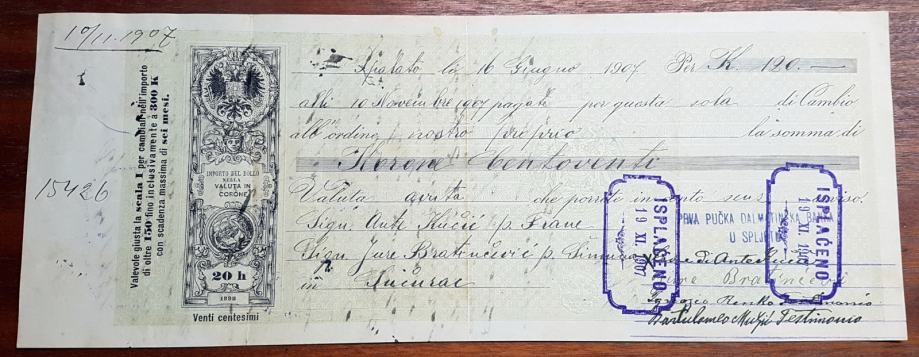 10/11. 1907
15426
Valevole giusta la scala I per cambiali nell'importo
di oltre 150 fino inclusivamente a 300 K
con scadenza massima di sei mesi.
IMPORTO DEL BOLLO
NELLA
VALUTA IN
CORONE
20 h
1898
Venti centesimi
Spalato li 16 Giugno 1907 Per K. 120.—
alli 10 Novembre 1907 pagate per questa sola di Cambio
all'ordine nostro proprio la somma di
Korone Centoventi
Valuta che porrete in conto
Sign. Ante Kučić p. Frane
Sign Jure Bratinčević p. Šimuna
in Kučurac
PRVA PUČKA DALMATINSKA
U SPLJETU
ISPLAĆENO
19 XI. 1907
ISPLAĆENO
19 XI. 1907
Jure Bratinčević
Testimonio
Bartulomeo Testimonio